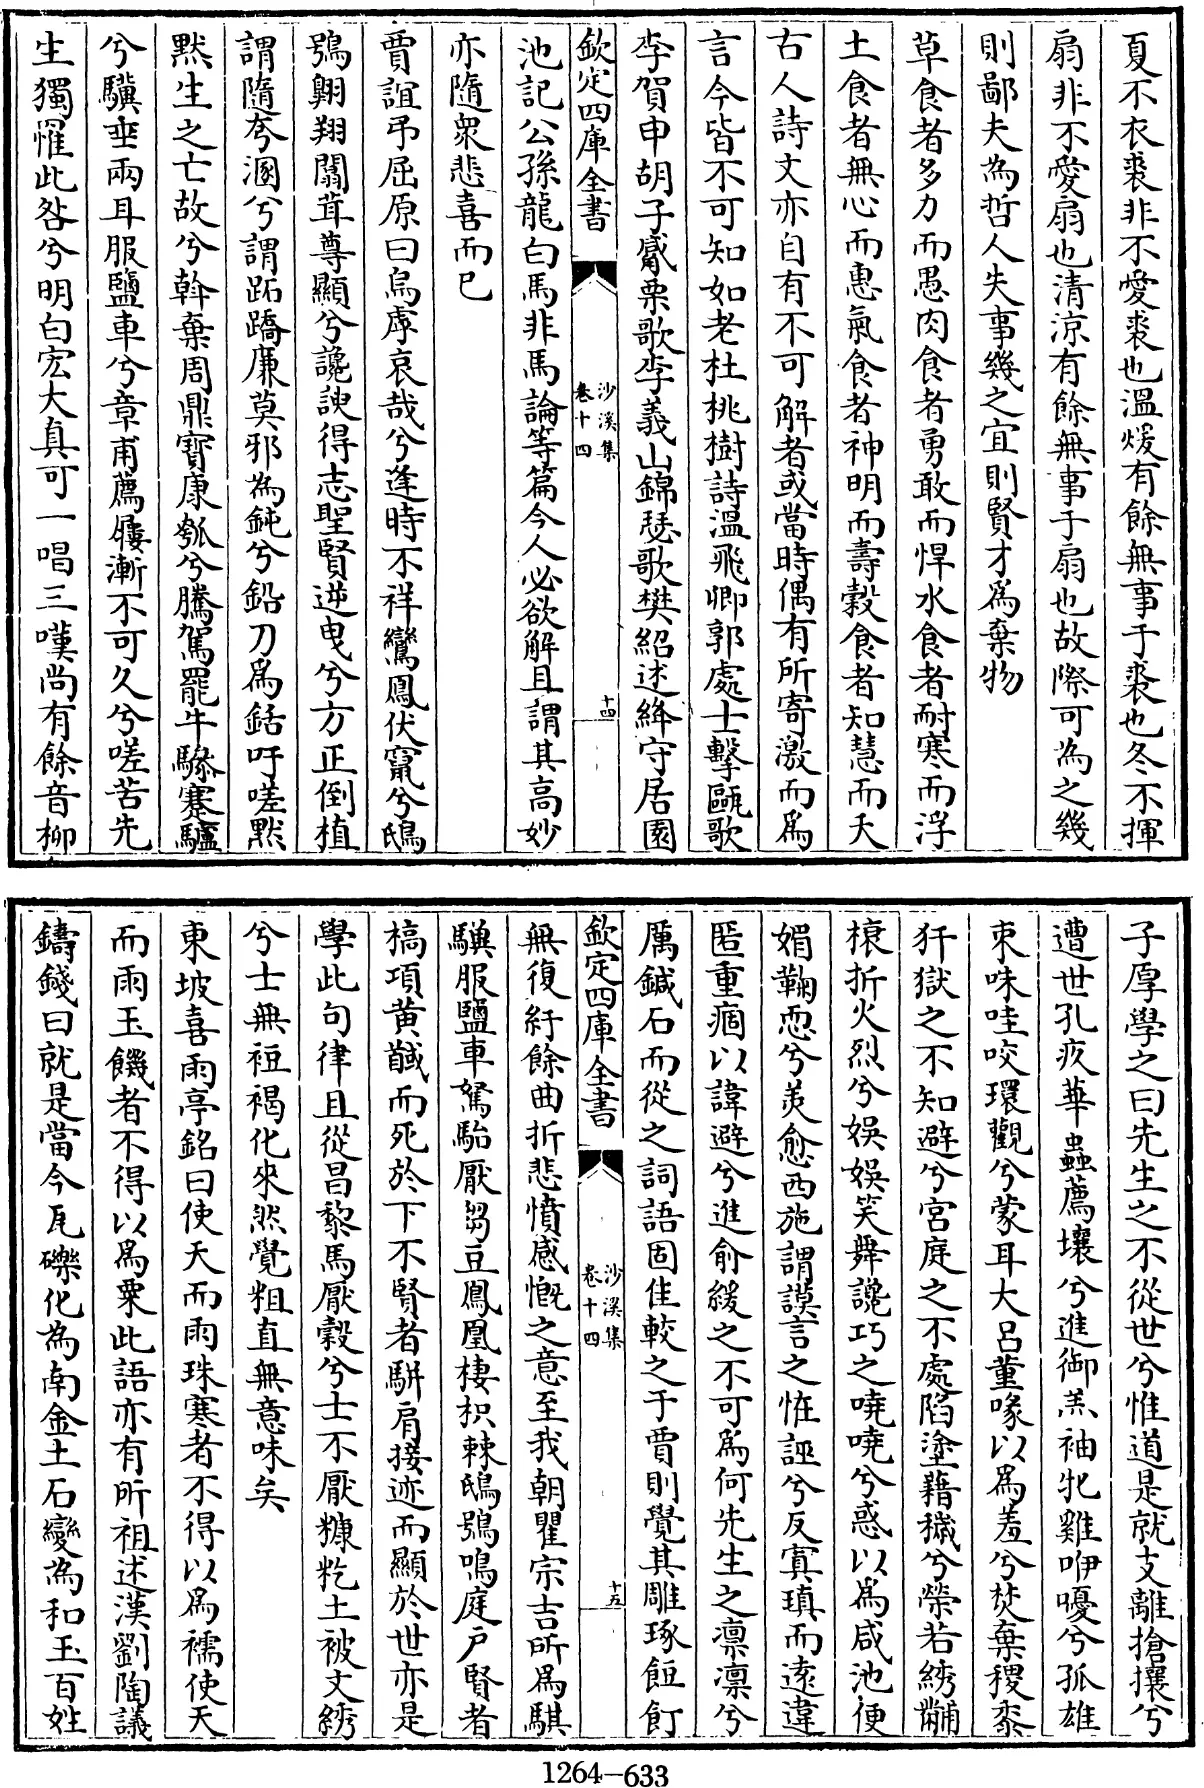 夏不衣裘非不愛裘也溫煖有餘無事于裘也冬不揮
扇非不愛扇也清涼有餘無事于扇也故際可為之幾
則鄙夫為哲人失事幾之宜則賢才爲棄物
草食者多力而愚肉食者勇敢而悍水食者耐寒而浮
土食者無心而惠氣食者神明而壽穀食者知慧而夭
古人詩文亦自有不可解者或當時偶有所寄激而爲
言今皆不可知如老杜桃樹詩溫飛卿郭處士擊甌歌
李賀申胡子觱栗歌李義山錦瑟歌樊紹述絳守居園
欽定四庫全書
沙溪集
卷十四
十四
池記公孫龍白馬非馬論等篇今人必欲解且謂其高妙
亦隨衆悲喜而已
賈誼弔屈原曰烏虖哀哉兮逢時不祥鸞鳳伏竄兮鴟
鴞翺翔闒茸尊顯兮讒諛得志聖賢逆曳兮方正倒植
謂隨夸溷兮謂跖蹻廉莫邪為鈍兮鉛刀爲銛吁嗟默
默生之亡故兮斡棄周鼎寶康瓠兮騰駕罷牛驂蹇驢
兮驥垂兩耳服鹽車兮章甫薦屨漸不可久兮嗟苦先
生獨罹此咎兮明白宏大真可一唱三嘆尚有餘音柳
子厚學之曰先生之不從世兮惟道是就支離搶攘兮
遭世孔疚華蟲薦壤兮進御羔袖牝雞咿嚘兮孤雄
束咮哇咬環觀兮蒙耳大呂堇喙以爲羞兮焚棄稷黍
犴獄之不知避兮宮庭之不處陷塗藉穢兮榮若綉黼
榱折火烈兮娛娛笑舞讒巧之嘵嘵兮惑以爲咸池便
媚鞠恧兮羙愈西施謂謨言之恠誣兮反寘瑱而遠違
匿重痼以諱避兮進俞緩之不可爲何先生之凛凛兮
厲鍼石而從之詞語固佳較之于賈則覺其雕琢飣餖
欽定四庫全書
沙溪集
卷十四
十五
無復紆餘曲折悲憤感慨之意至我朝瞿宗吉所爲騏
驥服鹽車駑駘厭芻豆鳳凰棲枳棘鴟鴞鳴庭戶賢者
槁項黄馘而死於下不賢者駢肩接迹而顯於世亦是
學此句律且從昌黎馬厭穀兮士不厭糠籺土被文綉
兮士無裋褐化來然覺粗直無意味矣
東坡喜雨亭銘曰使天而雨珠寒者不得以爲襦使天
而雨玉饑者不得以爲粟此語亦有所祖述漢劉陶議
鑄錢曰就是當今瓦礫化為南金土石變為和玉百姓
1264—633